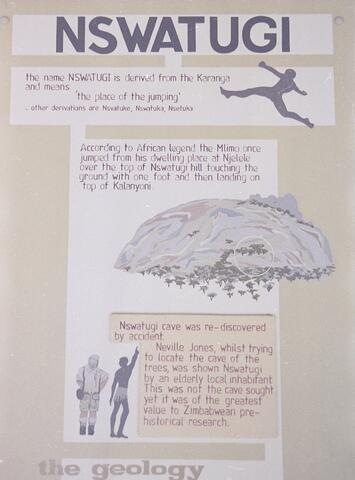 NSWATUGI
the name NSWATUGI is derived from the Karanga
and means
'the place of the jumping'
- other derivations are Nswatuke, Nswatuka, Nsetuka
According to African legend the Mlimo once
jumped from his dwelling place at Njelele
over the top of Nswatugi hill touching the
ground with one foot and then landing on
top of Kalanyoni.
Nswatugi cave was re-discovered
by accident.
Neville Jones, whilst trying
to locate the cave of the
trees, was shown Nswatugi
by an elderly local inhabitant
This was not the cave sought
yet it was of the greatest
value to Zimbabwean pre-
historical research.
the geology